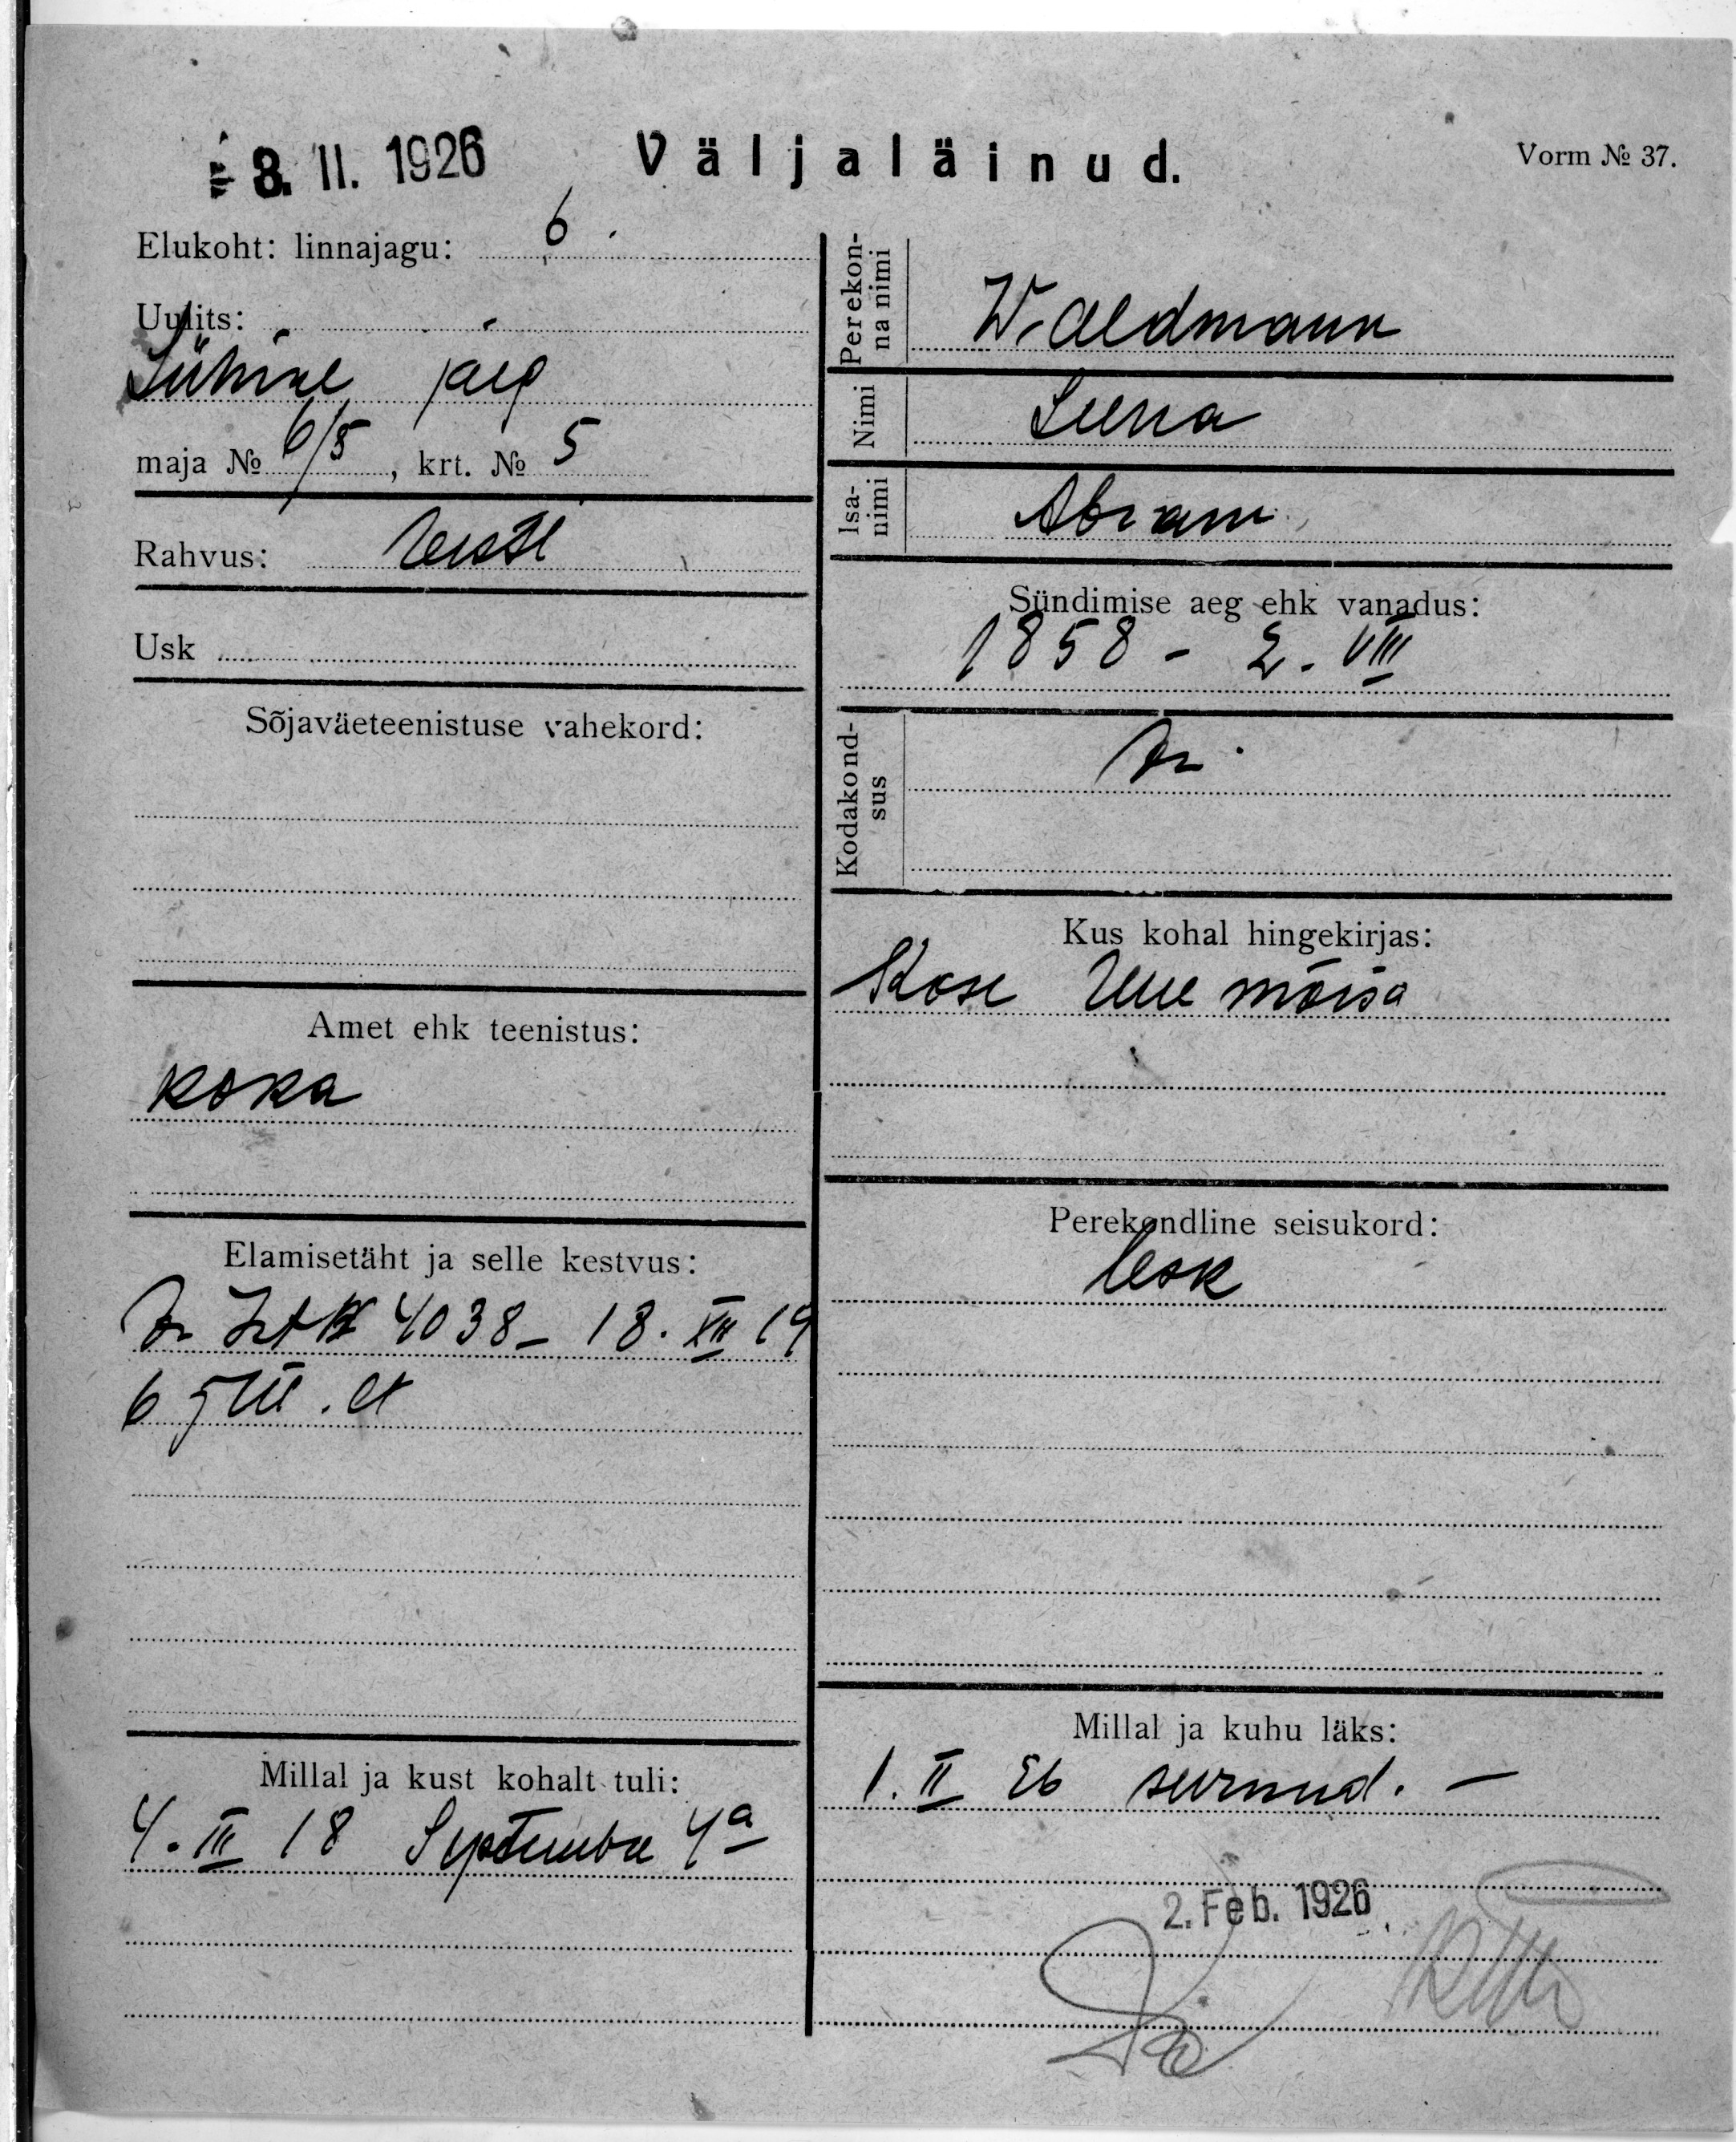 8. II. 1926
Väljaläinud.
Vorm № 37.
Elukoht: linnajagu: 6.
Uulits:
Lühike jalg
maja № 6/5, krt. № 5
Rahvus: Eesti
Usk
Sõjaväeteenistuse vahekord:
Amet ehk teenistus:
koka
Elamisetäht ja selle kestvus:
4038 – 18. XII 19
6 jsk. et
Millal ja kust kohalt tuli:
4. III 18 Septembre 4a
Perekonna nimi
Waldmann
Nimi
Leena
Isanimi
Abram
Sündimise aeg ehk vanadus:
1858 – 2. VIII
Kodakondsus
Kus kohal hingekirjas:
Kose Uue mõisa
Perekondline seisukord:
lesk
Millal ja kuhu läks:
1. II 26 surnud. –
2. Feb. 1926